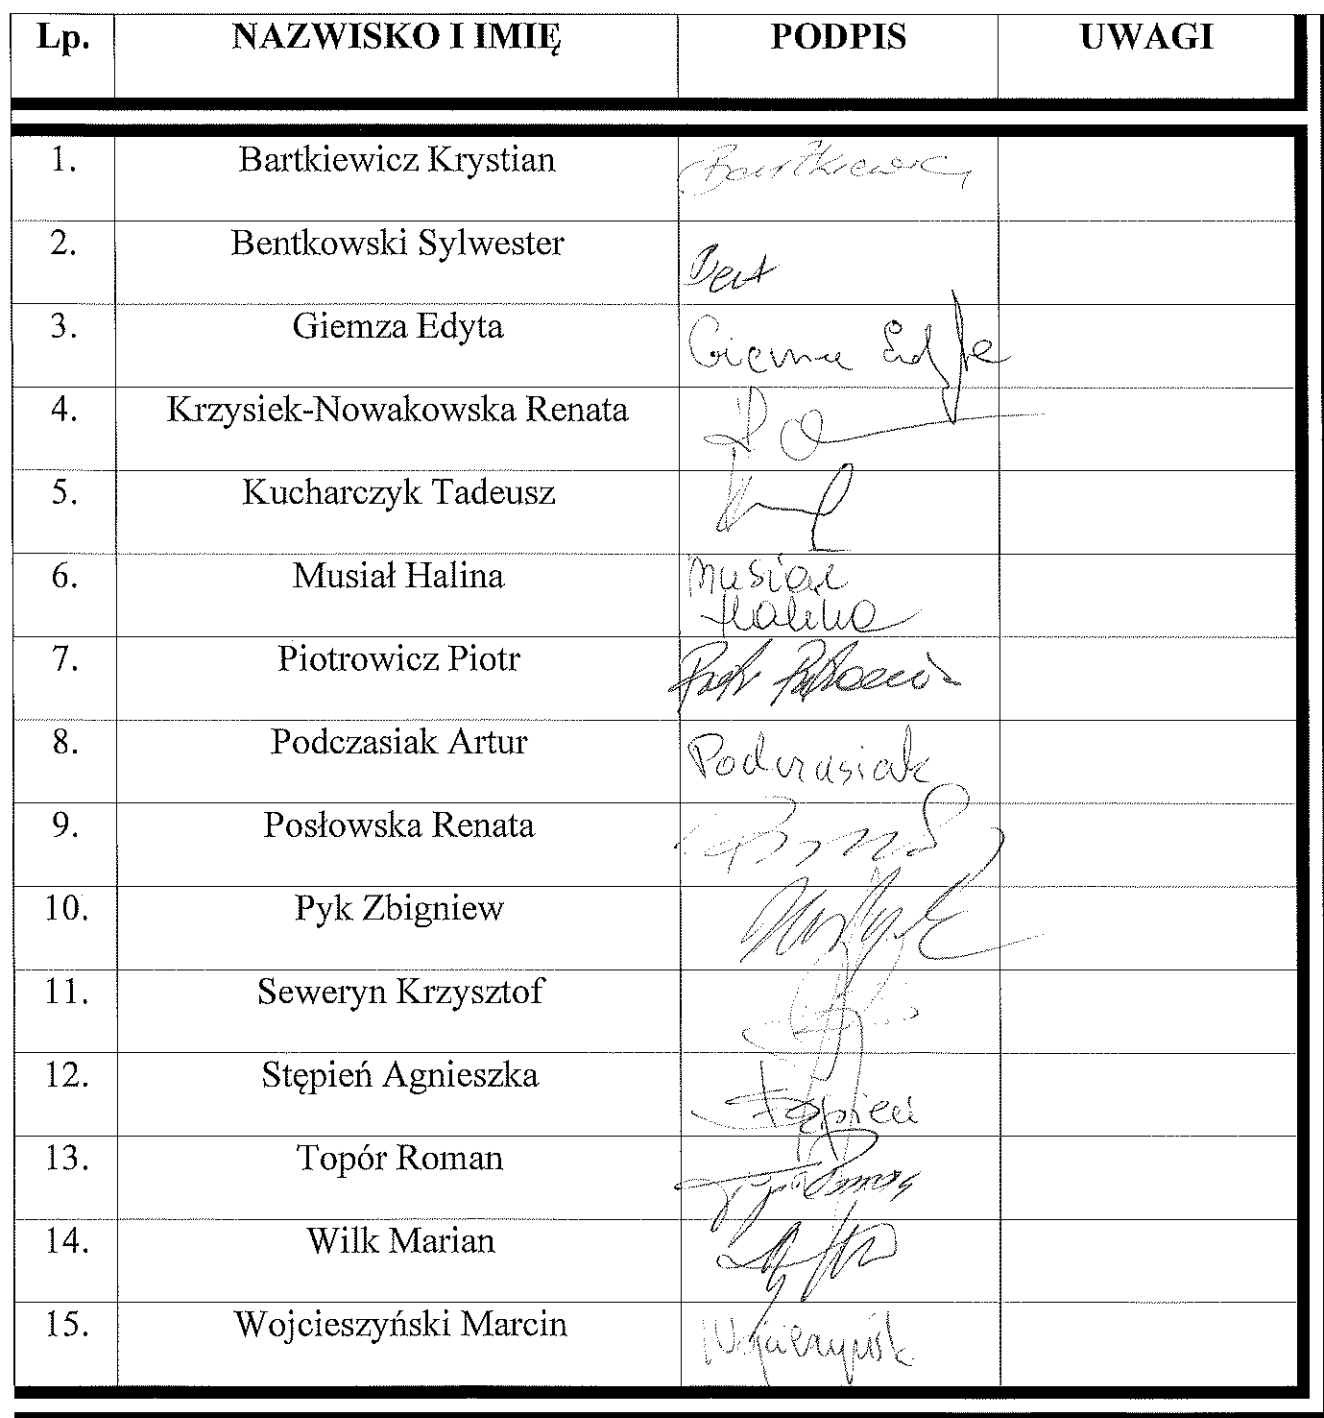 Lp. NAZWISKO I IMIĘ PODPIS UWAGI
1. Bartkiewicz Krystian Bartkiewicz
2. Bentkowski Sylwester Bent
3. Giemza Edyta Giemza Edyta
4. Krzysiek-Nowakowska Renata
5. Kucharczyk Tadeusz
6. Musiał Halina Musiał
Halina
7. Piotrowicz Piotr Piotr Piotrowicz
8. Podczasiak Artur Podczasiak
9. Posłowska Renata
10. Pyk Zbigniew
11. Seweryn Krzysztof
12. Stępień Agnieszka Stępień
13. Topór Roman Topór Roman
14. Wilk Marian
15. Wojcieszyński Marcin